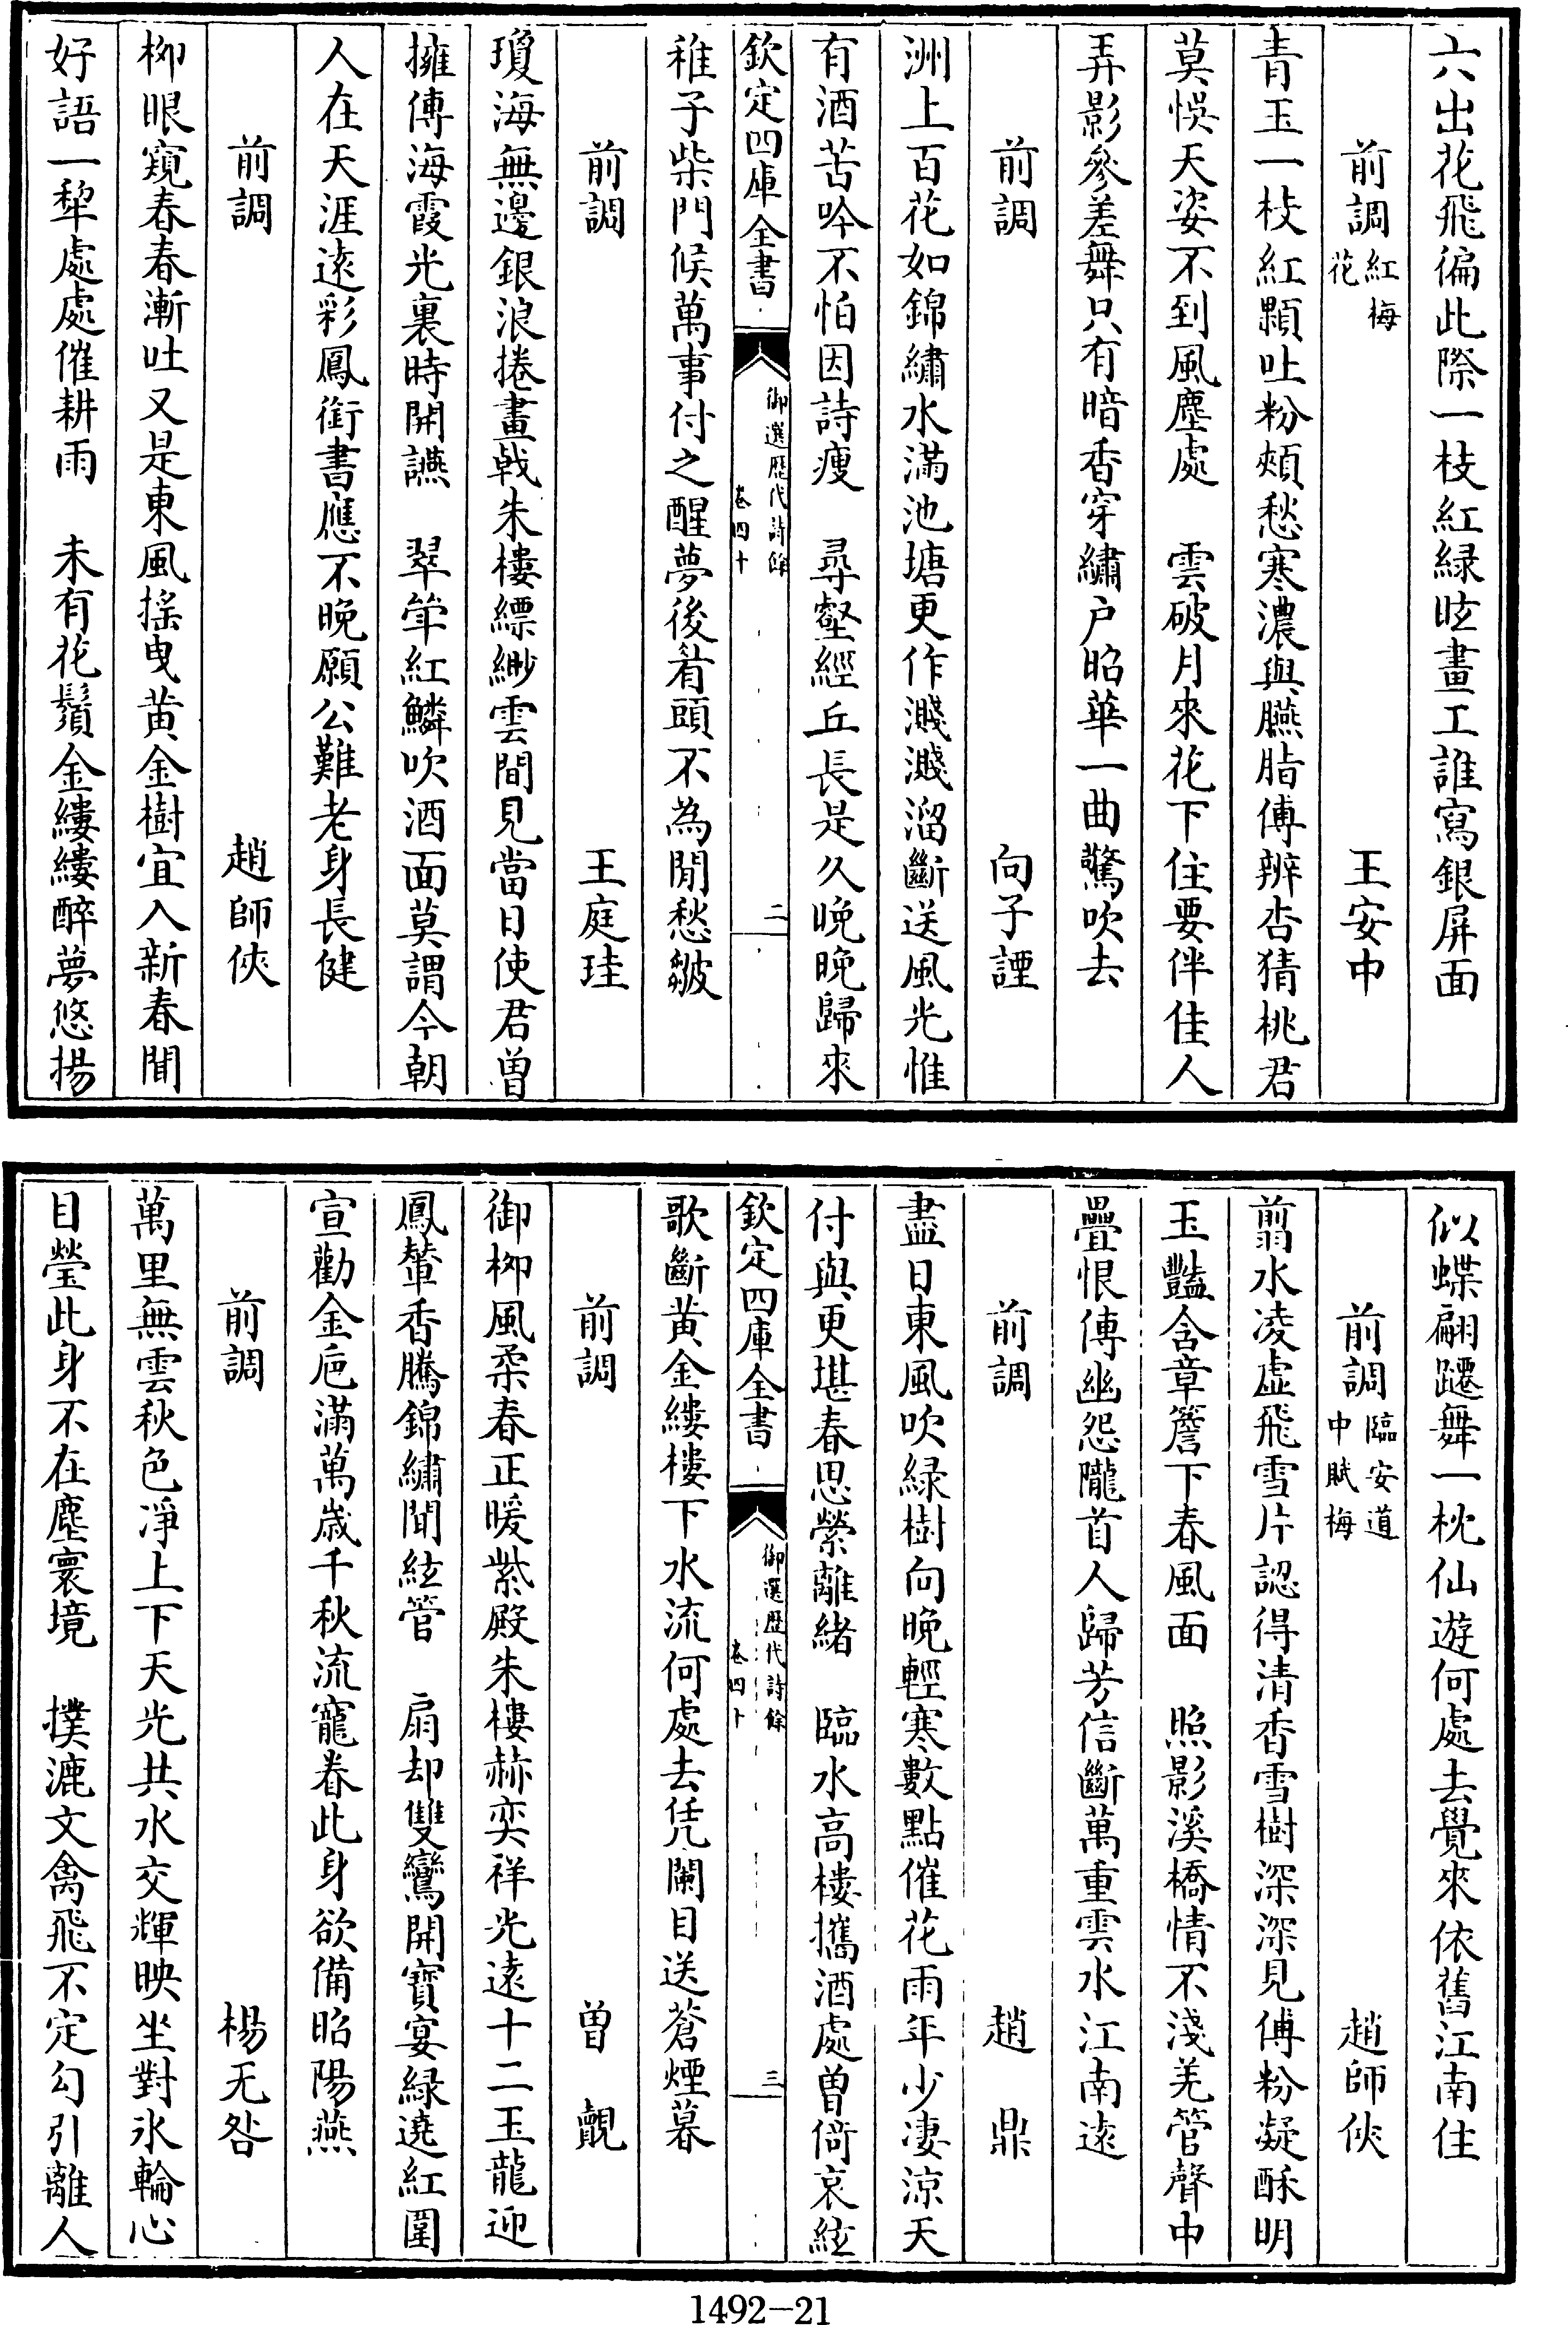 六出花飛徧此際一枝紅緑眩畫工誰寫銀屏面
前調紅梅花　王安中
青玉一枝紅顆吐粉頰愁寒濃與臙脂傅辨杏猜桃君
莫悞天姿不到風塵處　雲破月來花下住要伴佳人
弄影參差舞只有暗香穿繡户昭華一曲驚吹去
前調　向子諲
洲上百花如錦繡水滿池塘更作濺濺溜斷送風光惟
有酒苦吟不怕因詩瘦　尋壑經丘長是久晚晚歸來
欽定四庫全書　御選歷代詩餘卷四十　二
稚子柴門候萬事付之醒夢後眉頭不為閒愁皺
前調　王庭珪
瓊海無邊銀浪捲畫戟朱樓縹緲雲間見當日使君曾
擁傳海霞光裏時開讌　翠斝紅鱗吹酒面莫謂今朝
人在天涯遠彩鳳銜書應不晚願公難老身長健
前調　趙師俠
柳眼窺春春漸吐又是東風摇曳黄金樹宜入新春聞
好語一犂處處催耕雨　未有花鬚金縷縷醉夢悠揚
似蝶翩躚舞一枕仙遊何處去覺來依舊江南住
前調臨安道中賦梅　趙師俠
翦水凌虚飛雪片認得清香雪樹深深見傅粉凝酥明
玉豔含章簷下春風面　照影溪橋情不淺羌管聲中
疊恨傳幽怨隴首人歸芳信斷萬重雲水江南遠
前調　趙鼎
盡日東風吹緑樹向晚輕寒數點催花雨年少凄涼天
付與更堪春思縈離緒　臨水高樓攜酒處曾倚哀絃
欽定四庫全書　御選歷代詩餘卷四十　三
歌斷黄金縷樓下水流何處去凭闌目送蒼煙暮
前調　曾覿
御柳風柔春正暖紫殿朱樓赫奕祥光遠十二玉龍迎
鳳輦香騰錦繡聞絃管　扇却雙鸞開寶宴緑遶紅圍
宣勸金巵滿萬歲千秋流寵眷此身欲備昭陽燕
前調　楊无咎
萬里無雲秋色凈上下天光共水交輝映坐對氷輪心
目瑩此身不在塵寰境　撲漉文禽飛不定勾引離人
1492-21